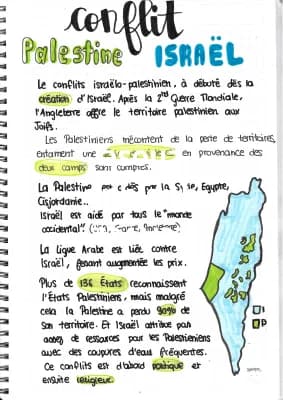 conflit
Palestine ISRAËL
Le conflits israélo-palestinien, à débuté dès la
création d'Israël. Après la 2nd Guerre Mondiale,
l'Angleterre offre le territoire palestinien aux
Juifs.
Les Palestiniens mécontent de la perte de territoires,
entament une en provenance des
deux camps sont comprises.
La Palestine par la Syrie, Egypte,
Cisjordanie..
Israël est aidé par tous le "monde
occidental"
La ligue Arabe est liée contre
Israël, faisant augmentée les prix.
Plus de 136 États reconnaissent
l'États Palestiniens, mais malgré
cela la Palestine a perdu 90% de
son territoire. Et Israël attribue pas
assez de ressources pour les Palestiniens
avec des coupures d'eau fréquentes.
Ce conflits est d'abord politique et
ensuite religieux.
I
P